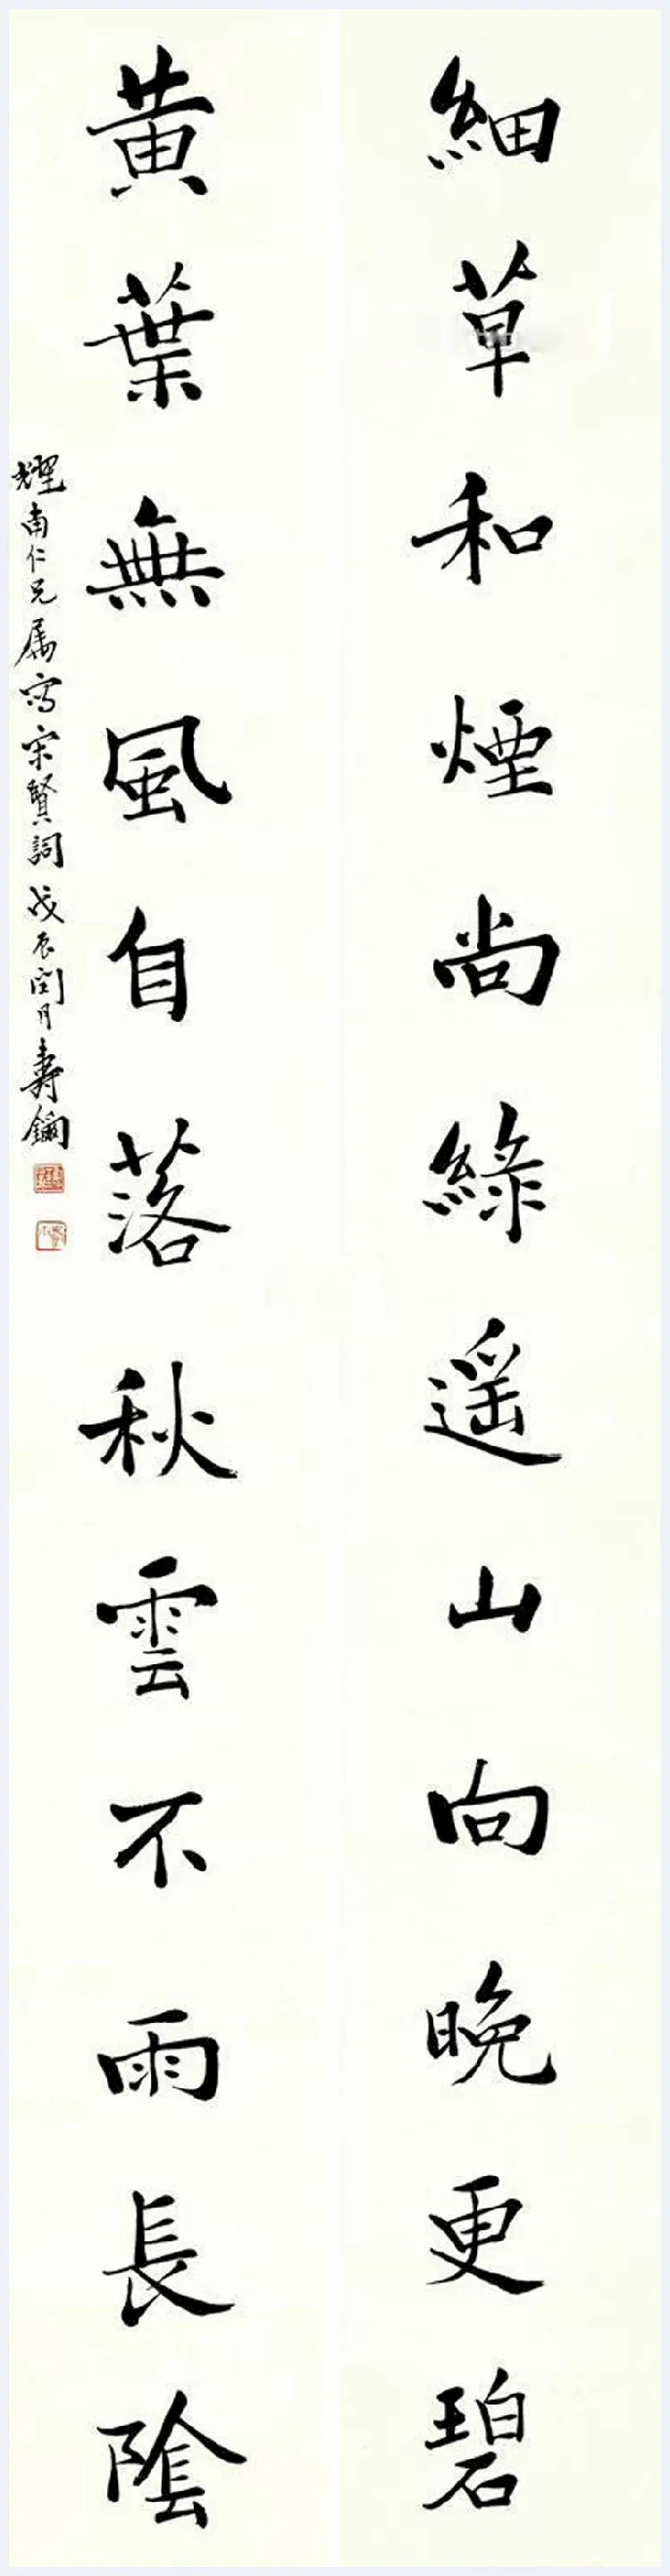 細草和煙尚綠遥山向晚更碧
黃葉無風自落秋雲不雨長陰
耀南仁兄屬寫宋賢詞戊辰閏月壽鏞